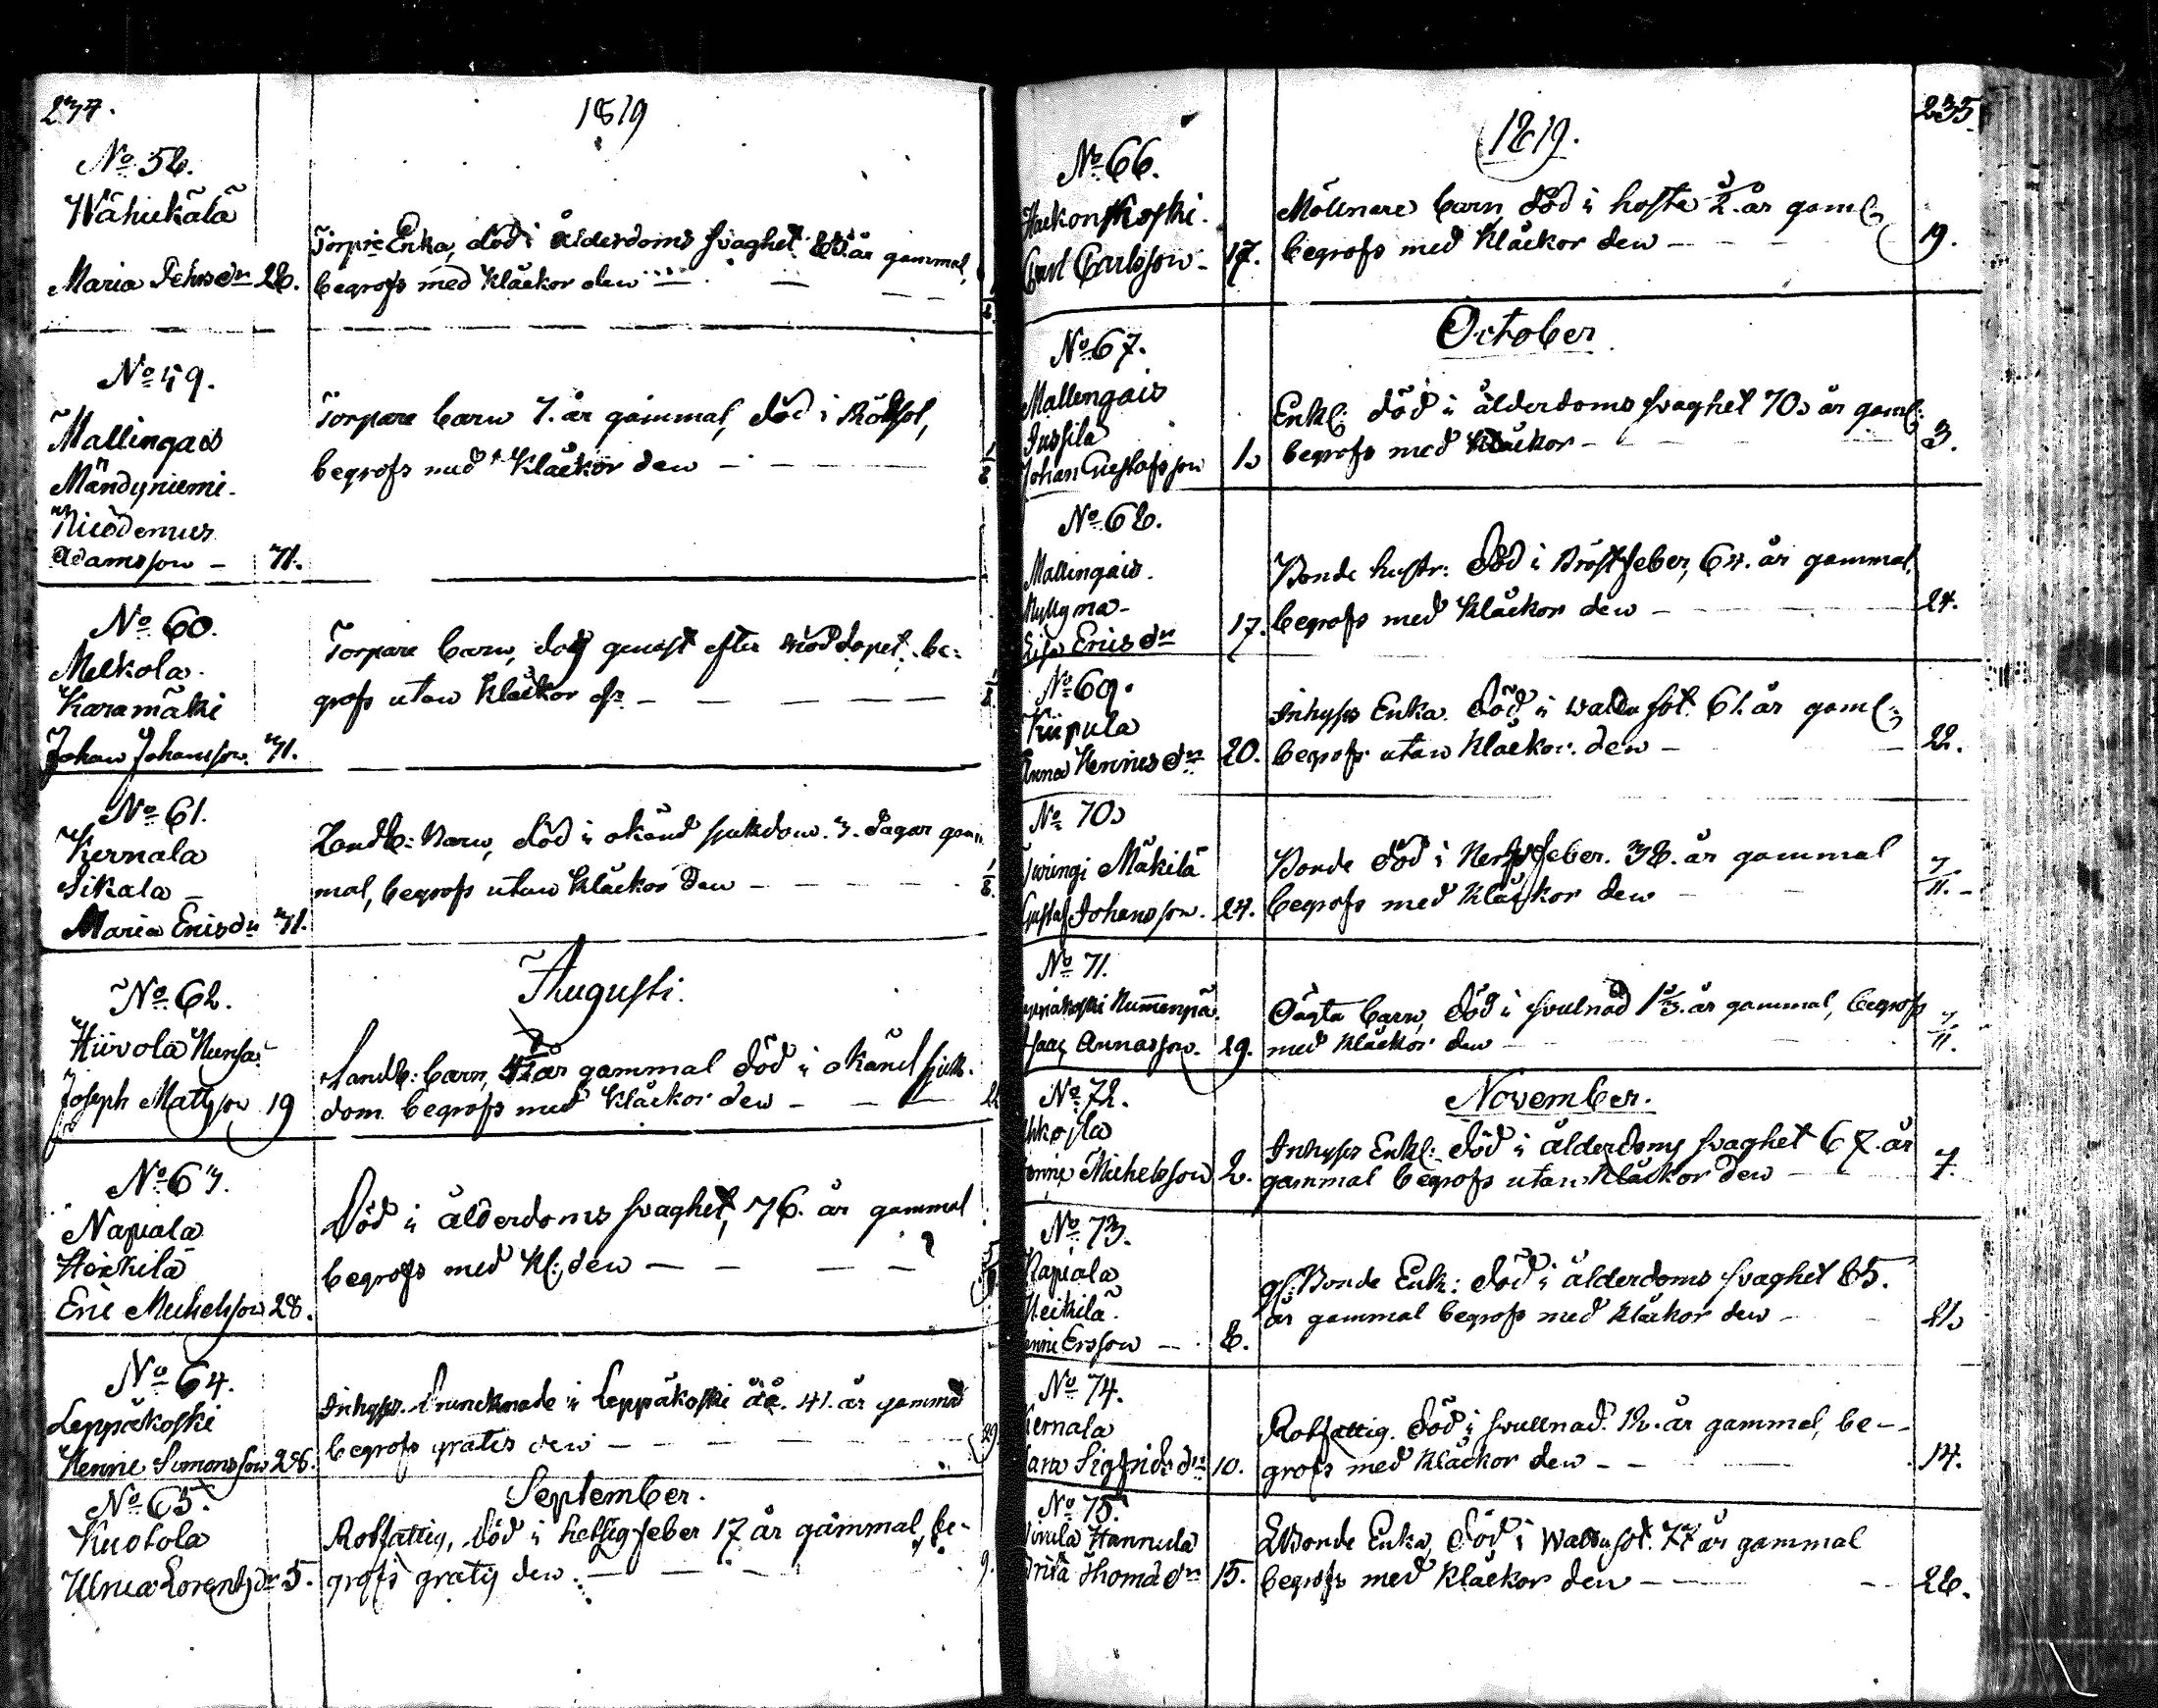 234.
1819
No 58.
Wähukälä
Maria Pehrsdr 28.
Torpre Enka, död i ålderdoms svaghet 88 år gammal,
begrofs med Kläckor den
No 59.
Mallingais
Mändyniemi.
Nicodemus
Adamsson - 31.
Torpare barn 7. år gammal, död i Rödsot,
begrofs med Kläckor den - 1/8
No 60.
Melkola
Karamäki
Johan Johansson. 31.
Torpare barn, dog genast efter nöddopet, be:
grofs utan Kläckor - 1/8.
No 61.
Kernala
Sikala -
Maria Ericsdr 31.
Landb: Barn, död i okänd sjukdom. 3. dagar gam,,
mal, begrofs utan Kläckor den - 1/8.
Augusti.
No 62.
Hiivola
Joseph Mattsson 19
Landb: barn, år gammal död i okänd sjuk.
dom begrofs med Kläckor den - 22
No 63.
Napiala
Heikilä
Eric Michelsson 28.
Död i ålderdoms svaghet, 76. år gammal
begrofs med Kl: den -
No 64.
Leppäkoski
Henric Simonsson 28.
Inhyses. Drunknade i Leppäkoski åå. 41. år gammal
begrofs gratis den - 29
September.
No 65.
Kuotola
Ulrica Lorentzdr 5.
Rotfattig, död i hetsig feber 17 år gammal, be-
grofs gratis den. - 9.
235.
1819.
No 66.
Haekonskoski.
Carl Carlsson - 17.
Möllnare barn, död i hosta 1/2. år gaml:
begrofs med Kläckor den - 19.
October
No 67.
Mallengais
Jussila
Johan Gustafsson 1.
Enkl: död i ålderdoms svaghet 70 år gaml:
begrofs med Kläckor - 3.
No 68.
Mallingais.
Myllyma-
Lisa Ericsdr 17.
Bonde hustr: död i Bröstfeber, 64. år gammal,
begrofs med Kläckor den - 24.
No 69.
Kiipula
Anna Henricsdr 20.
Inhyses Enka. död i wattusot. 61. år gaml:
begrofs utan Kläckor. den - 22.
No 70
Turingi Mäkilä
Gustaf Johansson. 24.
Bonde död i Nerffeber. 38. år gammal
begrofs med Kläckor den - 7/11. -
No 71.
Leppäkoski Nummenpä.
Isaac Annasson. 29.
Oägta barn, död i svulnad 1 1/3. år gammal, begrofs
med Kläckor den - 7/11.
November.
No 72.
Henric Michelsson 2.
Inhyses Enkl: död i ålderdoms svaghet 67. år
gammal begrofs utan Kläckor den - 7.
No 73.
Napiala
Heikilä.
Henric Ersson - 8.
gl: Bonde Enk: död i ålderdoms svaghet 85.
år gammal begrofs med Kläckor den - 21
No 74.
Kernala
Caren Sigfridsdr 10.
Rotfattig. död i svullnad. 12. år gammal, be-
grofs med Kläckor den - 14.
No 75.
Hiivola Hannula
Brita Thomädr 15.
Bonde Enka, död i Wattusot. 77 år gammal
begrofs med Kläckor den - 28.